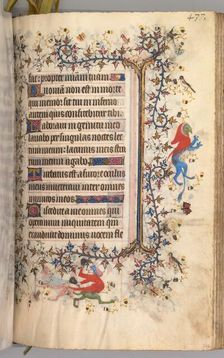 fac propter miam tuam
Quoniam non est in morte
qui memor sit tui in inferno
autem quis confitebitur tibi
Laboraui in gemitu meo
lauabo per singulas noctes lec
tum meum lacrimis meis stra
tum meum rigabo
Turbatus est a furore oculus
meus inueteraui inter omnes
inimicos meos
Discedite a me omnes qui
operamini iniquitatem qm
exaudiuit dominus uocem fle